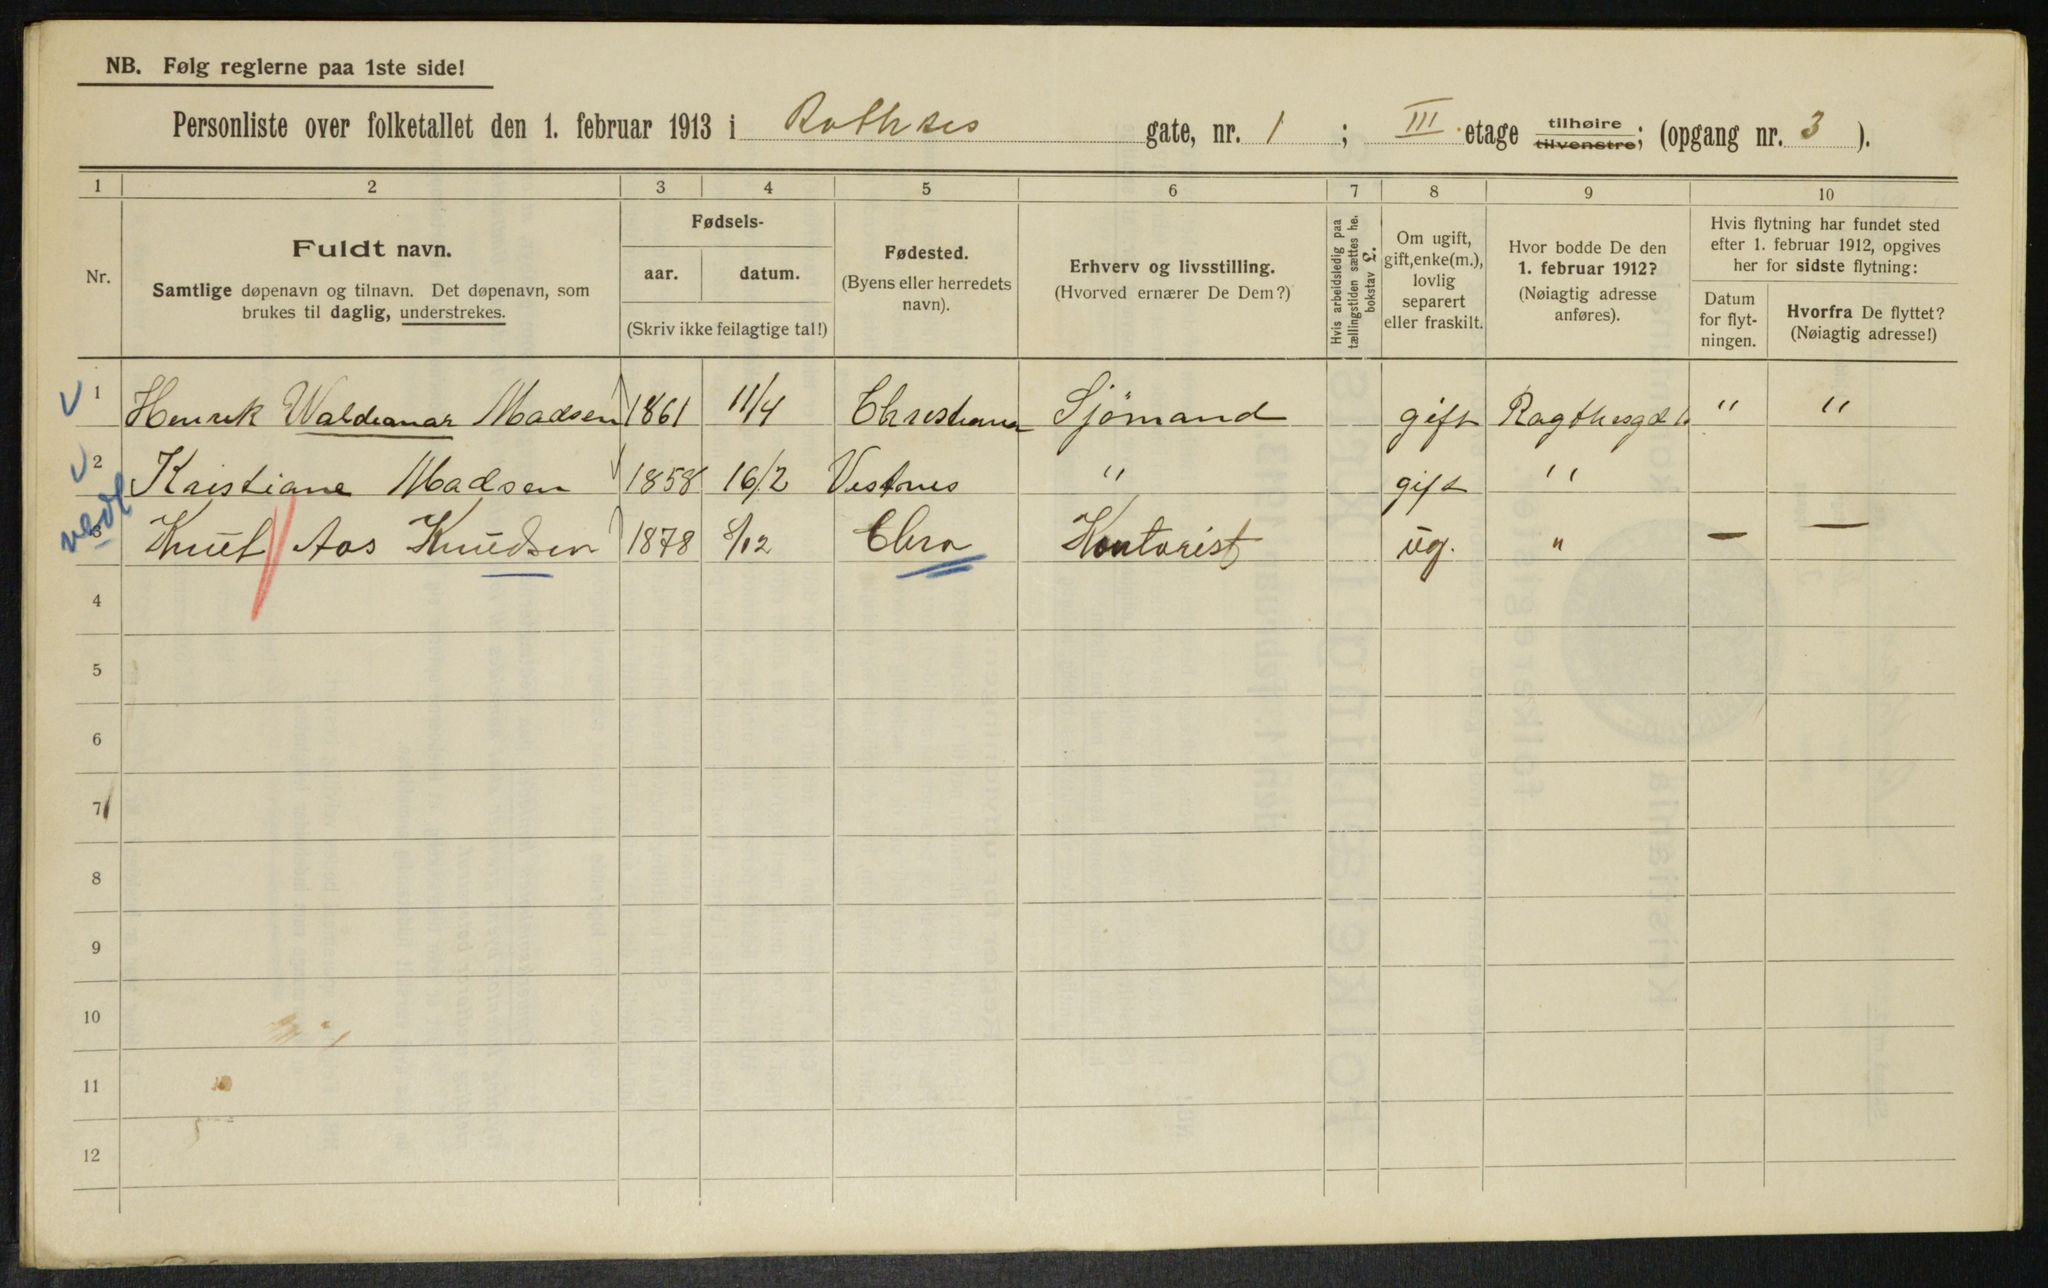 NB. Følg reglerne paa 1ste side!
Personliste over folketallet den 1. februar 1913 i Rathkes gate, nr. 1 ; III etage tilhøire tilvenstre; (opgang nr. 3 ).
1 2 3 4 5 6 7 8 9 10
Nr.
Fuldt navn.
Samtlige døpenavn og tilnavn. Det døpenavn, som
brukes til daglig, understrekes.
Fødsels-
aar. datum.
(Skriv ikke feilagtige tal!)
Fødested.
(Byens eller herredets
navn).
Erhverv og livsstilling.
(Hvorved ernærer De Dem?)
Hvis arbeidsledig paa
tællingstiden sættes he.
bokstav £.
Om ugift,
gift, enke(m.),
lovlig
separert
eller fraskilt.
Hvor bodde De den
1. februar 1912?
(Nøiagtig adresse
anføres).
Hvis flytning har fundet sted
efter 1. februar 1912, opgives
her for sidste flytning:
Datum
for flyt-
ningen.
Hvorfra De flyttet?
(Nøiagtig adresse!)
1 Henrik Waldemar Madsen 1861 11/4 Christiania Sjömand gift " "
2 Kristiane Madsen 1858 16/2 Vestnes " gift "
3 Knut Aas Knudsen 1878 8/12 Chra Kontorist ug. " — —
4
5
6
7
8
9
10
11
12